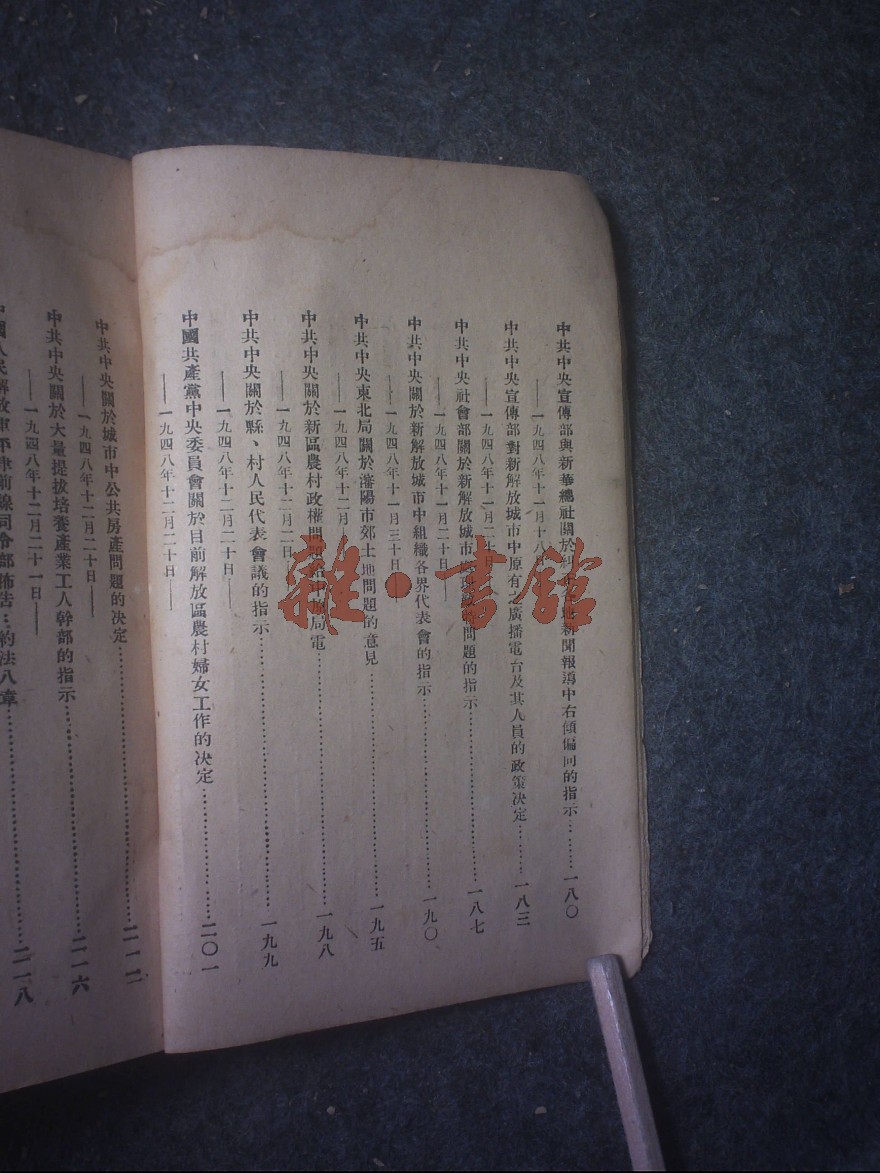 中共中央宣傳部與新華總社關於糾正各地新聞報導中右傾偏向的指示…………一八〇
——一九四八年十一月十八
中共中央宣傳部對新解放城市中原有之廣播電台及其人員的政策決定………一八三
——一九四八年十一月二十日
中共中央社會部關於新解放城市 問題的指示…………一八七
——一九四八年十一月二十日——
中共中央關於新解放城市中組織各界代表會的指示…………一九〇
——一九四八年十一月三十日——
中共中央東北局關於瀋陽市郊土地問題的意見…………一九五
——一九四八年十二月
中共中央關於新區農村政權問題給中原局電…………一九八
——一九四八年十二月二十日
中共中央關於縣、村人民代表會議的指示…………一九九
——一九四八年十二月二十日——
中國共產黨中央委員會關於目前解放區農村婦女工作的決定…………二〇一
——一九四八年十二月二十日——
中共中央關於城市中公共房產問題的決定…………二一二
——一九四八年十二月二十日——
中共中央關於大量提拔培養產業工人幹部的指示…………二一六
——一九四八年十二月二十一日——
中國人民解放軍平津前線司令部佈告：約法八章…………二一八
雜·書館